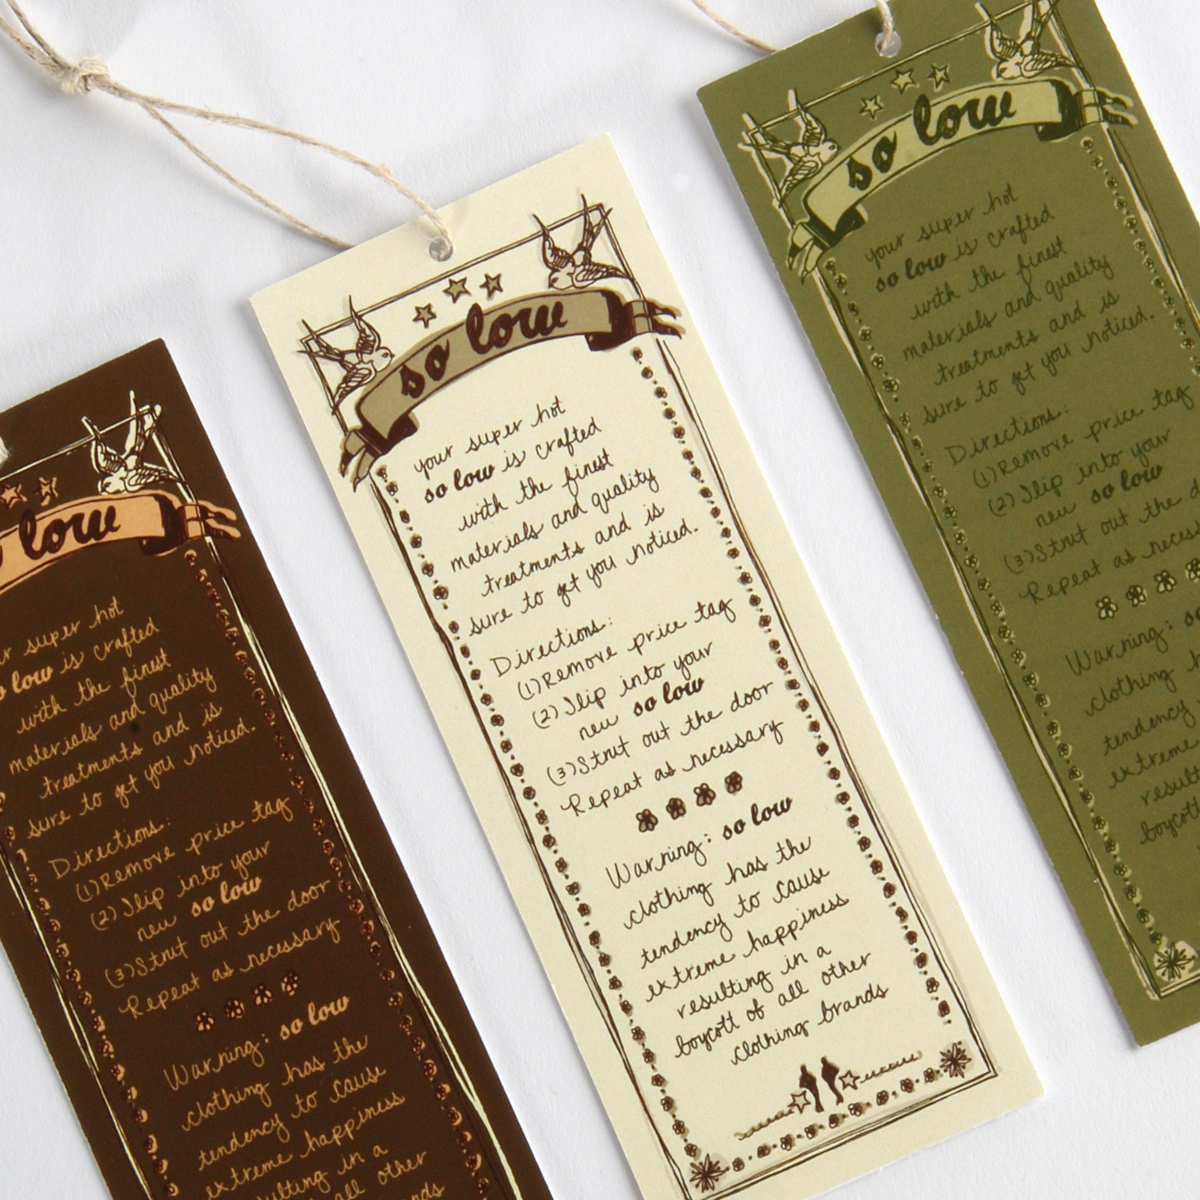 so low
your super hot
so low is crafted
with the finest
materials and quality
treatments and is
sure to get you noticed.
Directions:
(1) Remove price tag
(2) Slip into your
new so low
(3) Strut out the door
Repeat as necessary
Warning: so low
clothing has the
tendency to cause
extreme happiness
resulting in a
boycott of all other
clothing brands
low
super hot
low is crafted
with the finest
materials and quality
treatments and is
sure to get you noticed.
Directions:
(1) Remove price tag
(2) Slip into your
new so low
(3) Strut out the door
Repeat as necessary
Warning: so low
clothing has the
tendency to cause
extreme happiness
in a
all other
so low
your super hot
so low is crafted
with the finest
materials and quality
treatments and is
sure to get you noticed.
Directions:
(1) Remove price tag
(2) Slip into your
new so low
(3) Strut out the
Repeat as
Warning:
clothing
tendency
extreme
boycott